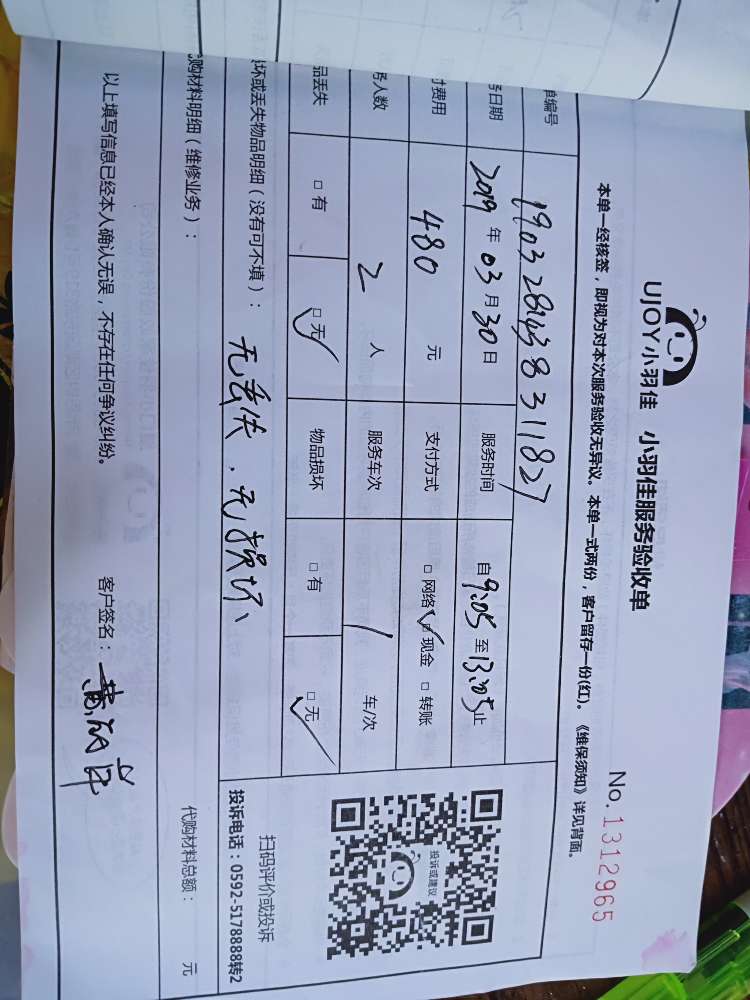 UJOY小羽佳 小羽佳服务验收单
No.1312965
本单一经核签，即视为对本次服务验收无异议。本单一式两份，客户留存一份(红)。《维保须知》详见背面。
单编号 190328143831827
务日期 2019年03月30日 服务时间 自9:05至13:05止
付费用 480元 支付方式 □网络 ☑现金 □转账
务人数 2人 服务车次 1车/次
品丢失 □有 ☑无 物品损坏 □有 ☑无
损坏或丢失物品明细（没有可不填）： 无丢失，无损坏、
投诉或建议
扫码评价或投诉
投诉电话：0592-5178888转2
代购材料明细（维修业务）：
代购材料总额： 元
以上填写信息已经本人确认无误，不存在任何争议纠纷。
客户签名：